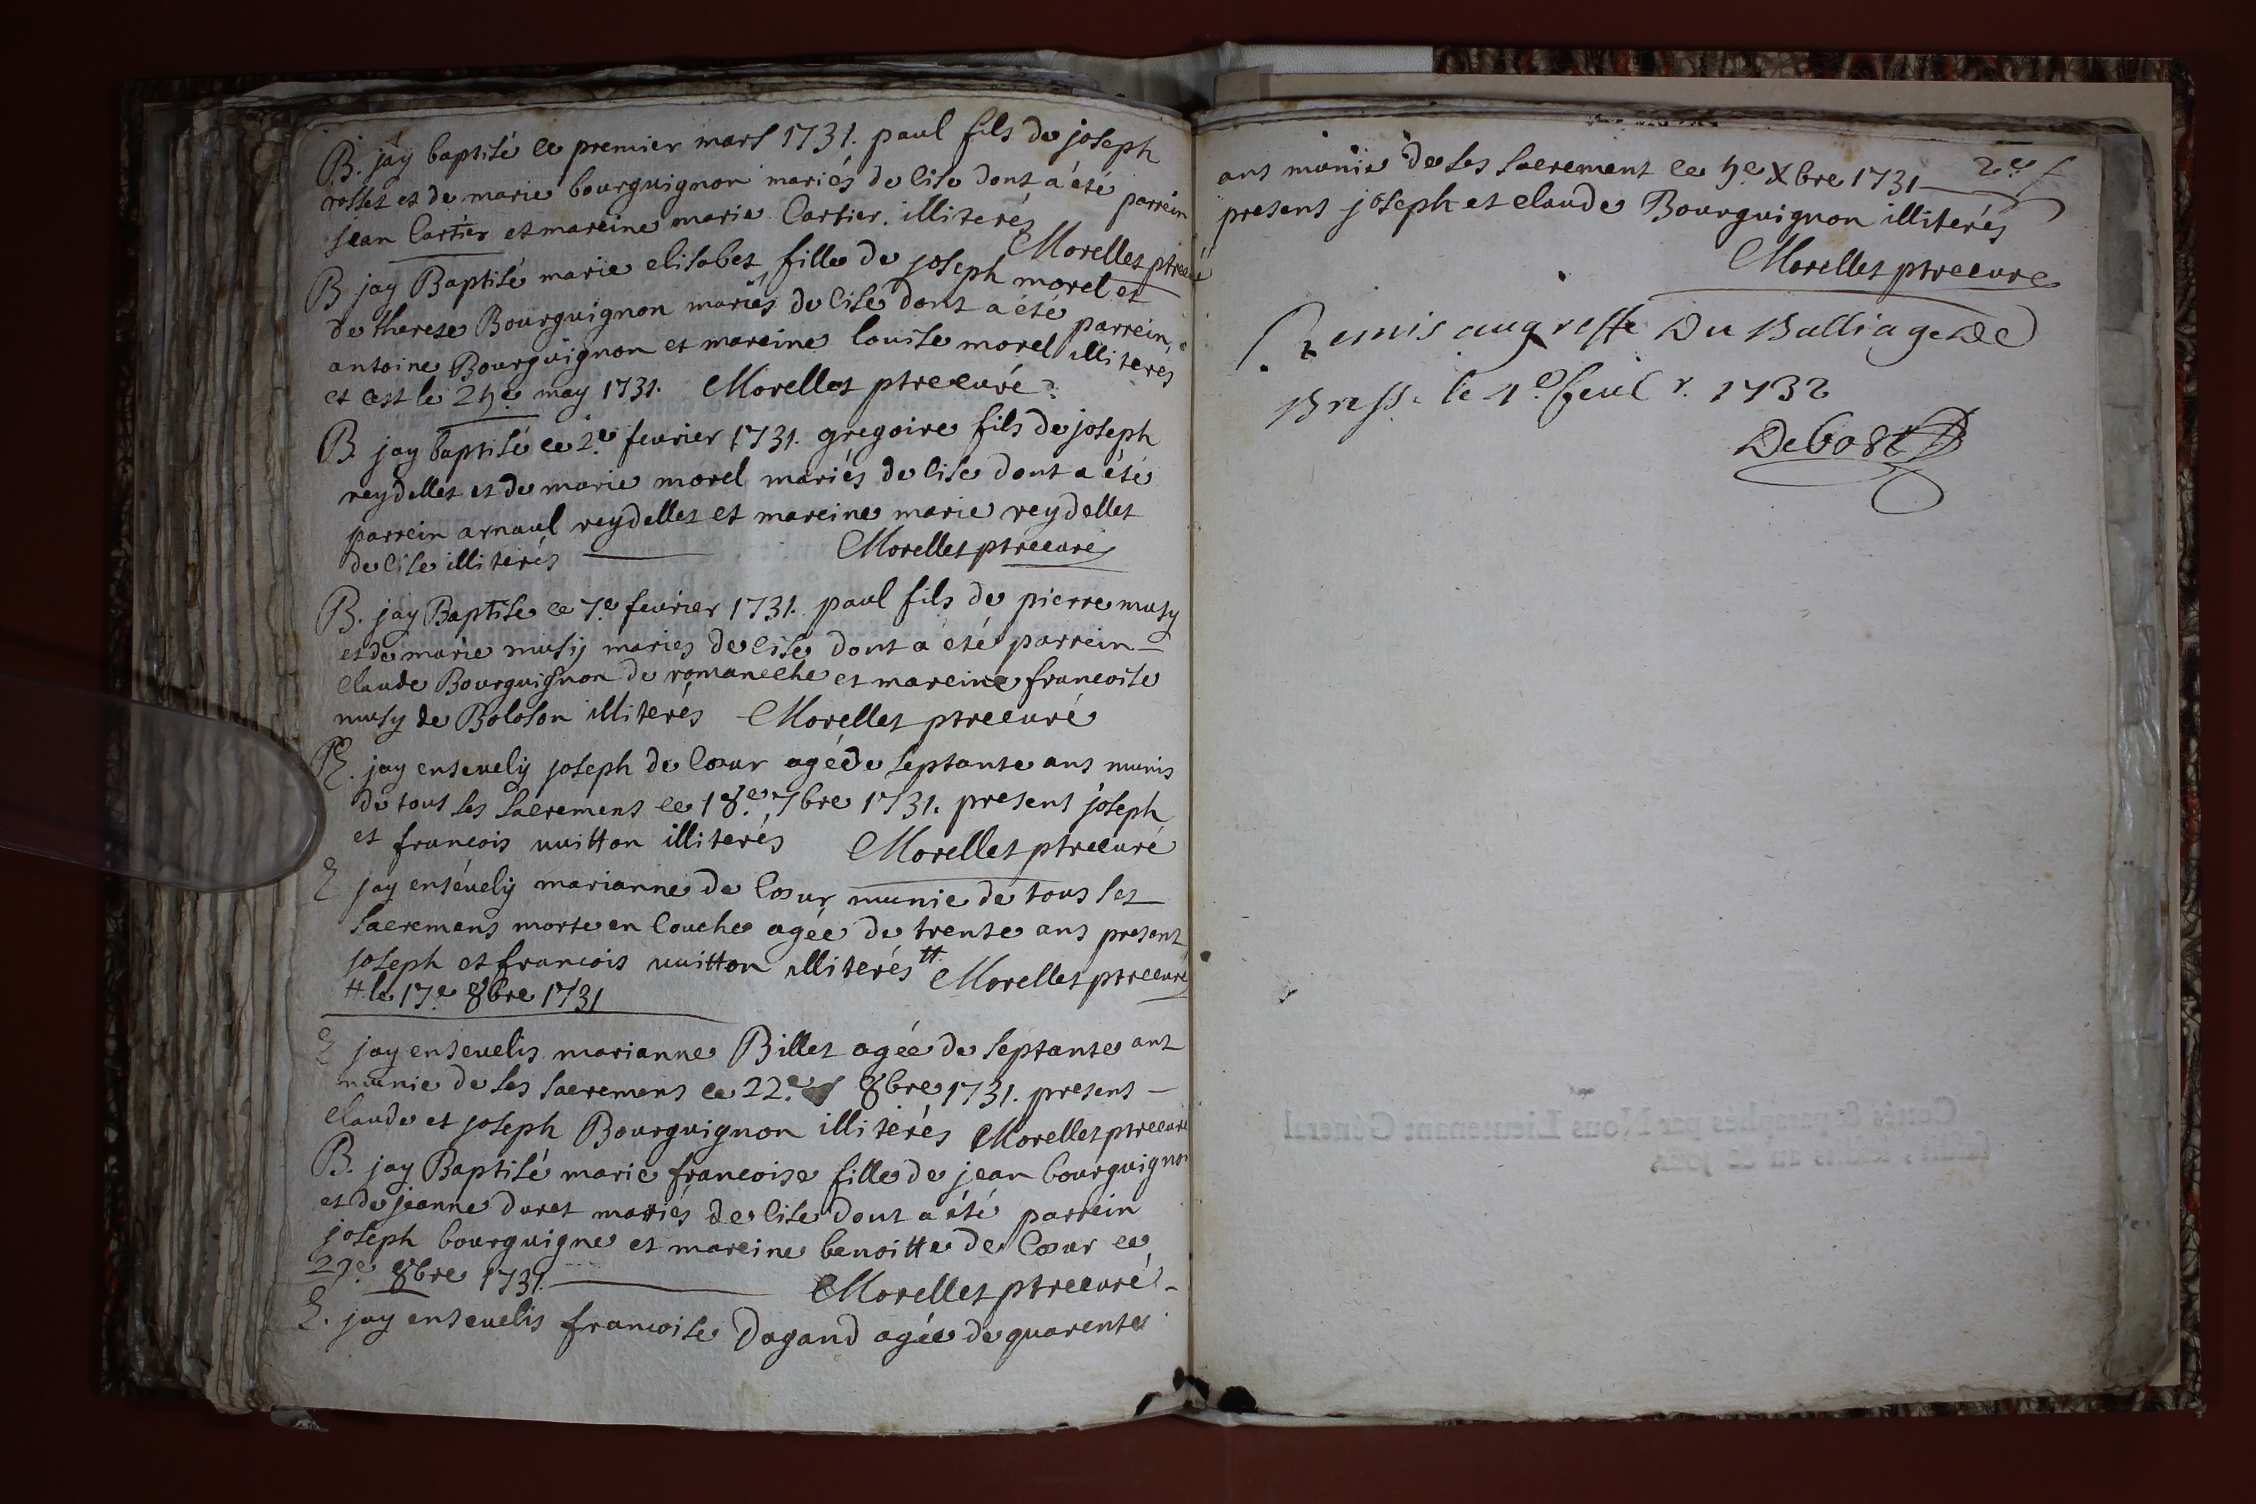 B. jay baptisé ce premier mars 1731. paul fils de joseph
rosset et de marie bourguignon mariés de lisle dont a été parrein
jean Cartier et mareine marie Cartier. illiterés
Morellet ptre curé
B jay Baptisé marie elisabet, fille de joseph morel et
de therese Bourguignon mariés de lisle dont a été parrein
antoine Bourguignon et mareine louise morel illiterés
et cest le 25e may 1731. Morellet ptre curé
B jay baptisé ce 2.e feurier 1731. gregoire fils de joseph
reydellet et de marie morel mariés de lisle dont a été
parrein arnaul reydellet et mareine marie reydellet
de lisle illiterés Morellet ptre curé
B. jay Baptisé ce 7.e feurier 1731. paul fils de pierre musy
et de marie musy mariés de lisle dont a été parrein
Claude Bourguignon de romaneche et mareine francoise
musy de Boloson illiterés Morellet ptre curé
E. jay enseuely joseph de Cœur agé de septante ans munis
de tous ses sacremens ce 18.e 7bre 1731. present joseph
et francois vuitton illiterés Morellet ptre curé
E jay enséuely marianne de Cœur munie de tous ses
sacremens morte en Couche agée de trente ans present
joseph et francois vuitton illiterés # Morellet ptre curé
# le 17.e 8bre 1731
E jay enseuelis marianne Billet agée de septante ans
munie de ses sacremens ce 22.e 8bre 1731. present
Claude et joseph Bourguignon illiterés Morellet ptre curé
B. jay Baptisé marie francoise fille de jean bourguignon
et de jeanne duret mariés de lisle dont a été parrein
joseph bourguigne et mareine benoitte de Cœur ce
27.e 8bre 1731. Morellet ptre curé
E. jay enseuelis francoise Dagand agée de quarente
ans munie de ses sacrement ce 5.e Xbre 1731
present joseph et claude Bourguignon illiterés
Morellet ptre cure
Remis au greffe Du Balliage De
Bresse le 1.e feur. 1732
Debost
Cottés & paraphés par Nous Lieutenant Général